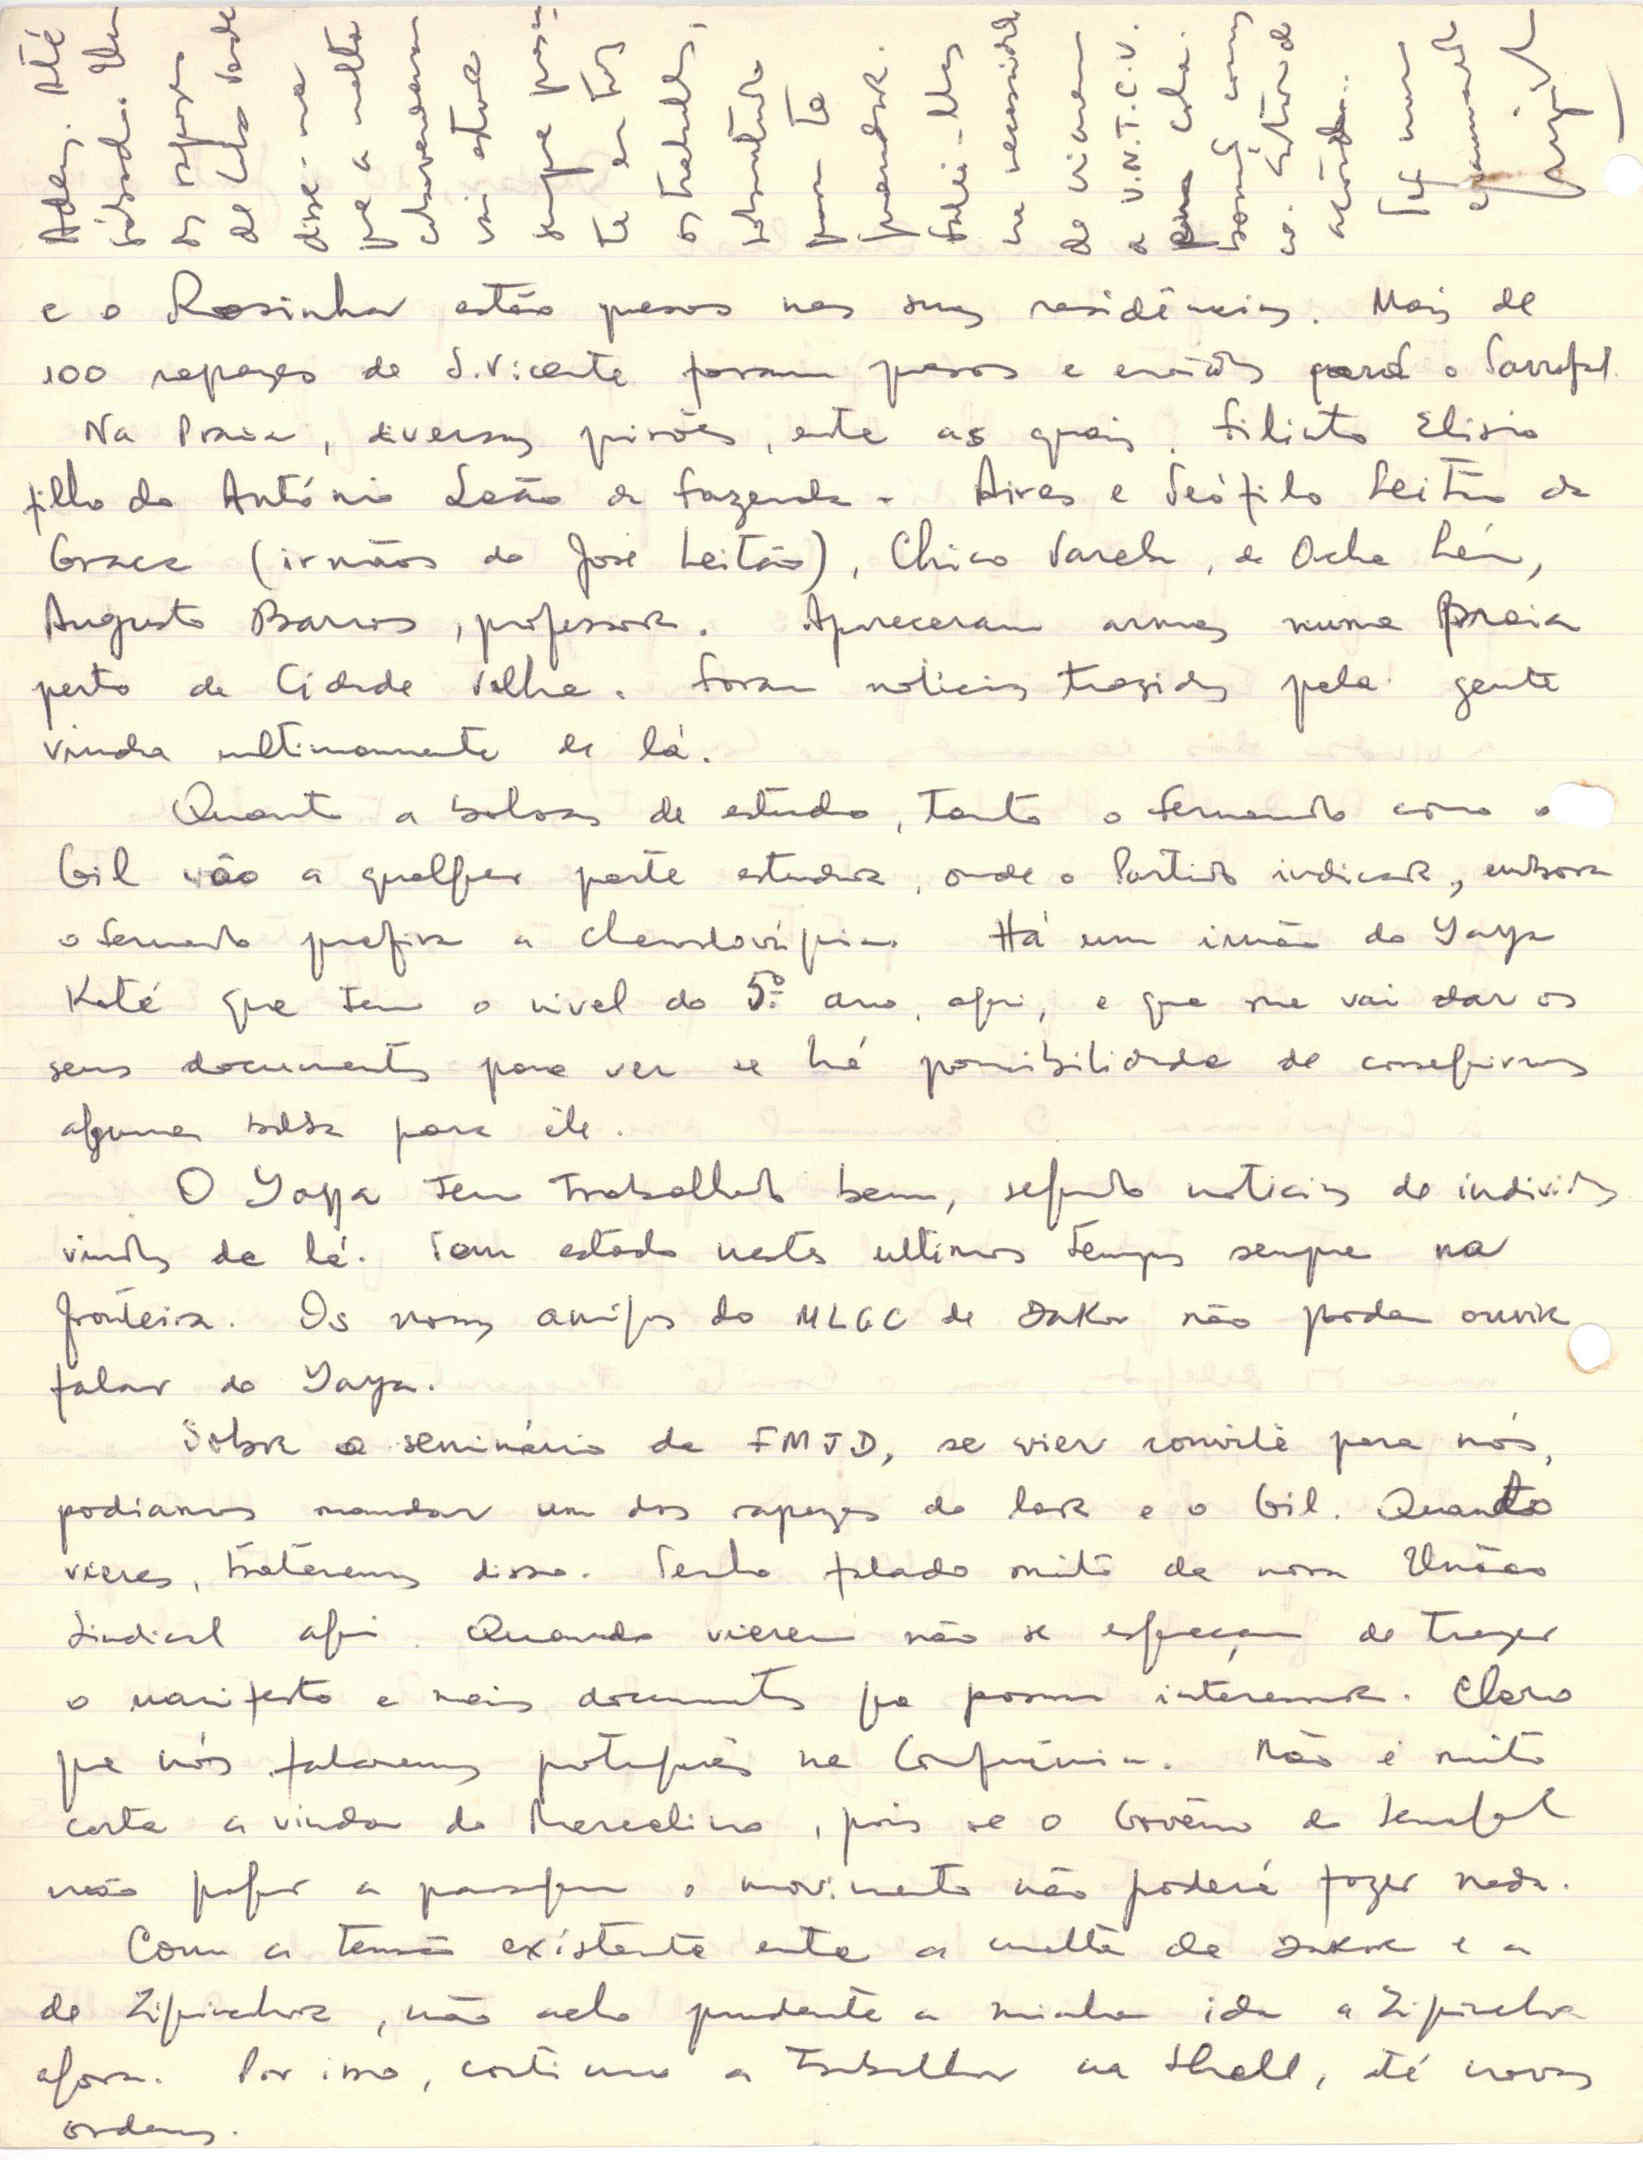 e o Rosinha estão presos nas suas residências. Mais de
100 rapazes de S. Vicente foram presos e enviados para o Tarrafal.
Na Praia, diversas prisões, entre as quais, Filinto Elisio
filho do António Leão da Fazenda - Aires e Teófilo Leitão da
Graça (irmãos do José Leitão), Chico Varela, de Achada
Augusto Barros, professor. Apareceram armas numa Praia
perto da Cidade Velha. Foram noticias trazidas pela gente
vinda ultimamente de lá.
Quanto a bolsas de estudo, tanto o Fernando como o
Gil vão a qualquer parte estudar, onde o Partido indicar, embora
o Fernando prefira a Checoslováquia. Há um irmão do Yaya
Koté que tem o nivel do 5º ano, aqui, e que me vai dar os
seus documentos para ver se há possibilidade de conseguirmos
alguma bolsa para êle.
O Yaya tem trabalhado bem, segundo noticias de individuos
vindos de lá. Tem estado nestes ultimos tempos sempre na
fronteira. Os nossos amigos do MLGC de Dakar não podem ouvir
falar do Yaya.
Sobre o seminário da FMJD, se vier convite para nós,
podiamos mandar um dos rapazes do Lar e o Gil. Quando
vieres, trataremos disso. Tenho falado muito da nossa União
Sindical aqui. Quando vierem não se esqueçam de trazer
o manifesto e mais documentos que possam interessar. Claro
que nós falaremos português na Conferência. Não é muito
certa a vinda do Marcelino, pois se o Govêrno do Senegal
não pagar a passagem o movimento não poderá fazer nada.
Com a tensão existente entre a malta de Dakar e a
de Ziguinchor, não acho prudente a minha ida a Ziguinchor
agora. Por isso, continuo a trabalhar na Shell, até novas
ordens.
Adeus. Até
sábado. Um
os rapazes
de Cabo Verde
disse-me
que a malta
caboverdeana
vai estar
sempre
te em tudo
os trabalhos,
sobretudo
para te
Falei-lhes
na necessidade
de virem
a U.N.T.C.V.
para cá.
Estou de
acôrdo...
Teu
camarada